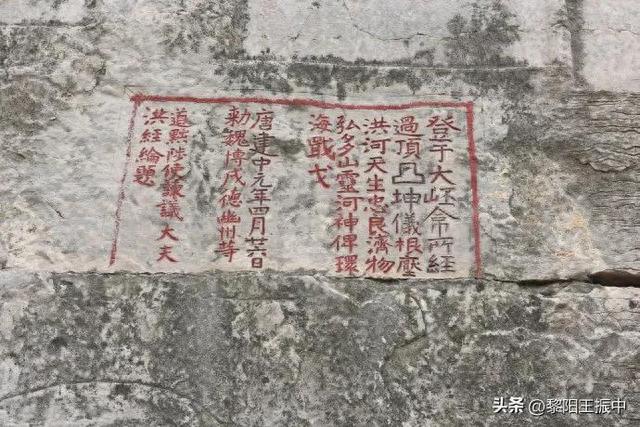 登于大岯命所経
過頂凸坤儀根壓
洪河天生忠良濟物
弘多山靈河神俾環
海戢戈
唐建中元年四月廿六日
勅魏博成德幽州等
道黜陟使諫議大夫
洪経綸題
头条 @黎阳王振中